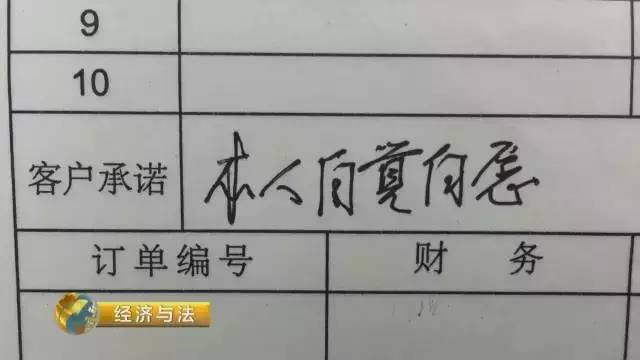 9
10
客户承诺 本人自觉自愿
订单编号 财务
经济与法